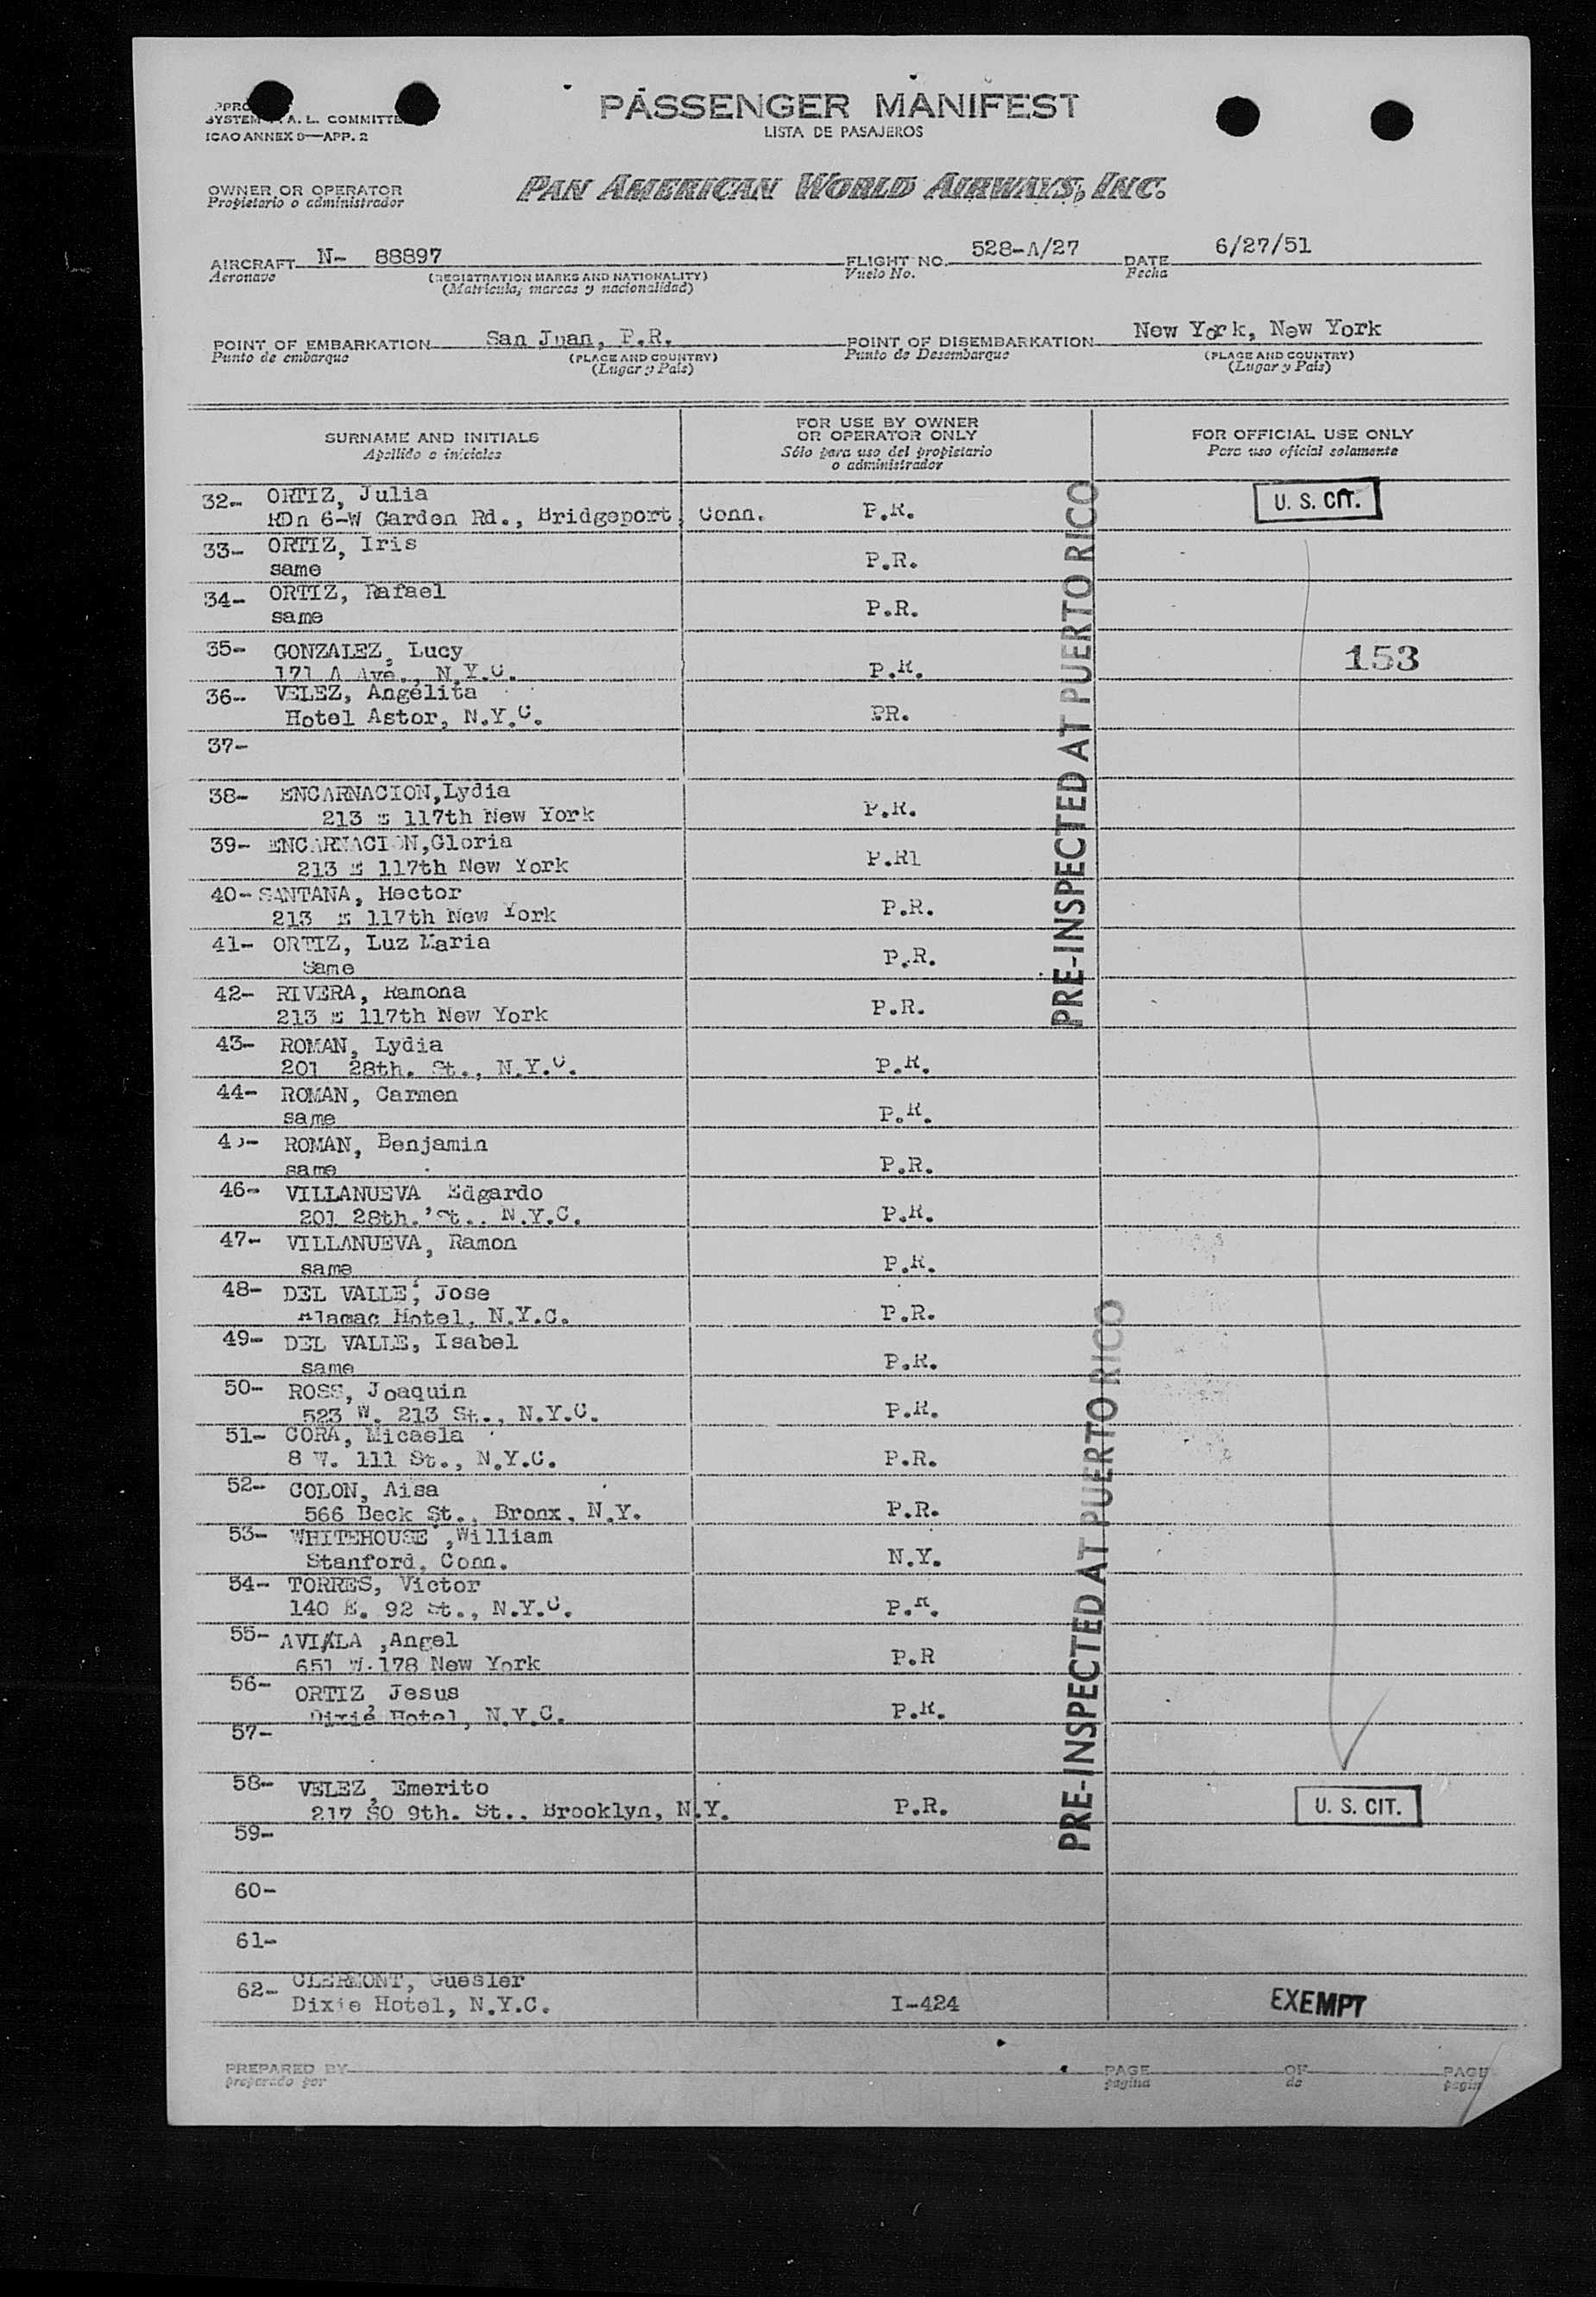 PASSENGER MANIFEST
LISTA DE PASAJEROS
SYSTEM A. L. COMMITTE
ICAO ANNEX 9—APP. 2
OWNER OR OPERATOR
Propietario o administrador
PAN AMERICAN WORLD AIRWAYS, INC.
AIRCRAFT N- 88897 FLIGHT NO. 528-A/27 DATE 6/27/51
Aeronave (REGISTRATION MARKS AND NATIONALITY) Vuelo No. Fecha
(Matricula, marcas y nacionalidad)
POINT OF EMBARKATION San Juan, P.R. POINT OF DISEMBARKATION New York, New York
Punto de embarque (PLACE AND COUNTRY) Punto de Desembarque (PLACE AND COUNTRY)
(Lugar y Pais) (Lugar y Pais)
SURNAME AND INITIALS
Apellido e iniciales
FOR USE BY OWNER
OR OPERATOR ONLY
Sólo para uso del propietario
o administrador
FOR OFFICIAL USE ONLY
Para uso oficial solamente
32- ORTIZ, Julia
RDn 6-W Garden Rd., Bridgeport, Conn. P.R. U. S. CIT.
33- ORTIZ, Iris
same P.R.
34- ORTIZ, Rafael
same P.R.
35- GONZALEZ, Lucy
171 A Ave., N.Y.C. P.R. 153
36- VELEZ, Angelita
Hotel Astor, N.Y.C. PR.
37-
38- ENCARNACION,Lydia
213 E 117th New York P.R.
39- ENCARNACION,Gloria
213 E 117th New York P.R1
40- SANTANA, Hector
213 E 117th New York P.R.
41- ORTIZ, Luz Maria
Same P.R.
42- RIVERA, Ramona
213 E 117th New York P.R.
43- ROMAN, Lydia
201 28th. St., N.Y.C. P.R.
44- ROMAN, Carmen
same P.R.
45- ROMAN, Benjamin
same P.R.
46- VILLANUEVA Edgardo
201 28th. St., N.Y.C. P.R.
47- VILLANUEVA, Ramon
same P.R.
48- DEL VALLE, Jose
Alamac Hotel, N.Y.C. P.R.
49- DEL VALLE, Isabel
same P.R.
50- ROSS, Joaquin
523 W. 213 St., N.Y.C. P.R.
51- CORA, Micaela
8 W. 111 St., N.Y.C. P.R.
52- COLON, Aisa
566 Beck St., Bronx, N.Y. P.R.
53- WHITEHOUSE ,William
Stanford, Conn. N.Y.
54- TORRES, Victor
140 E. 92 St., N.Y.C. P.R.
55- AVILA ,Angel
651 W.178 New York P.R
56- ORTIZ, Jesus
Dixie Hotel, N.Y.C. P.R.
57-
58- VELEZ, Emerito
217 SO 9th. St., Brooklyn, N.Y. P.R. U. S. CIT.
59-
60-
61-
62- CLERMONT, Guesler
Dixie Hotel, N.Y.C. I-424 EXEMPT
PRE-INSPECTED AT PUERTO RICO
PRE-INSPECTED AT PUERTO RICO
PREPARED BY PAGE OF PAGE
preparado por pagina de pagin